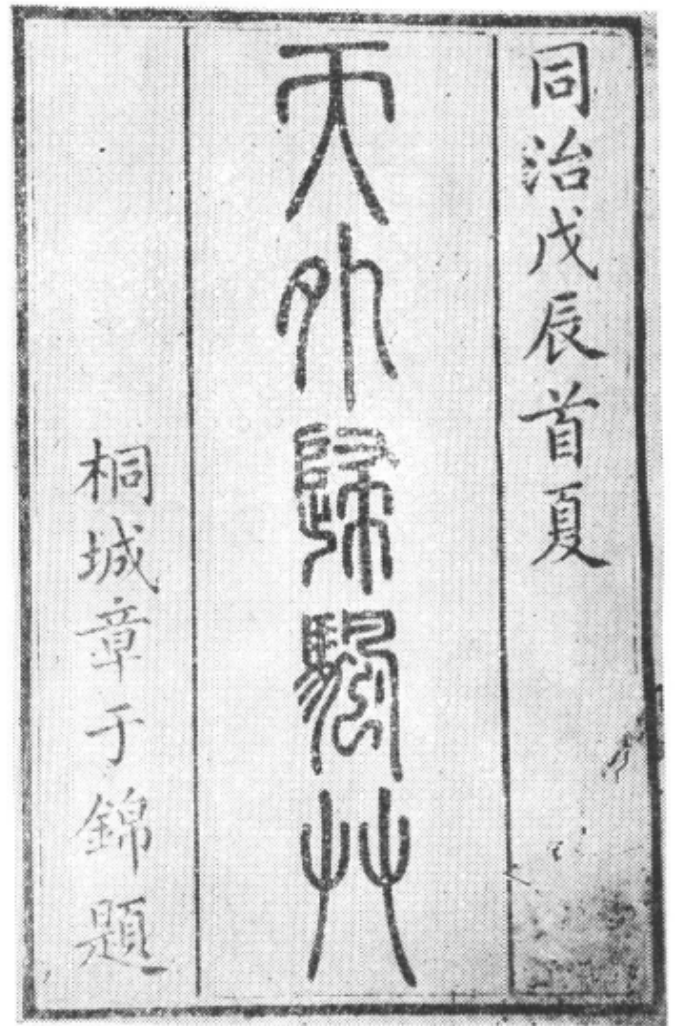 同治戊辰首夏
天外歸帆艸
桐城章于錦題